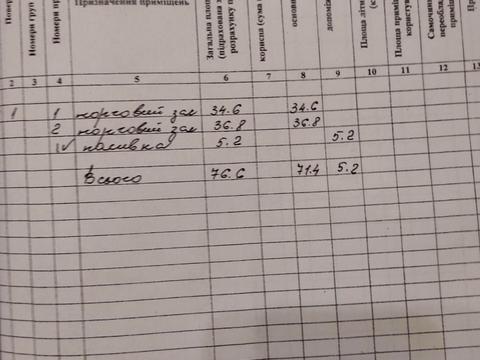 Повер
Номери груп
Номери пр
Призначення приміщень
Загальна площ
(підрахована з
розрахунку п
корисна (сума
основн
допоміж
Площа літн
Площа примі
користув
Самочинн
переоблад
приміщ
2 3 4 5 6 7 8 9 10 11 12 13
1 1 торговий зал 34.6 34.6
2 торговий зал 36.8 36.8
IV 5.2 5.2
Всього 76.6 71.4 5.2